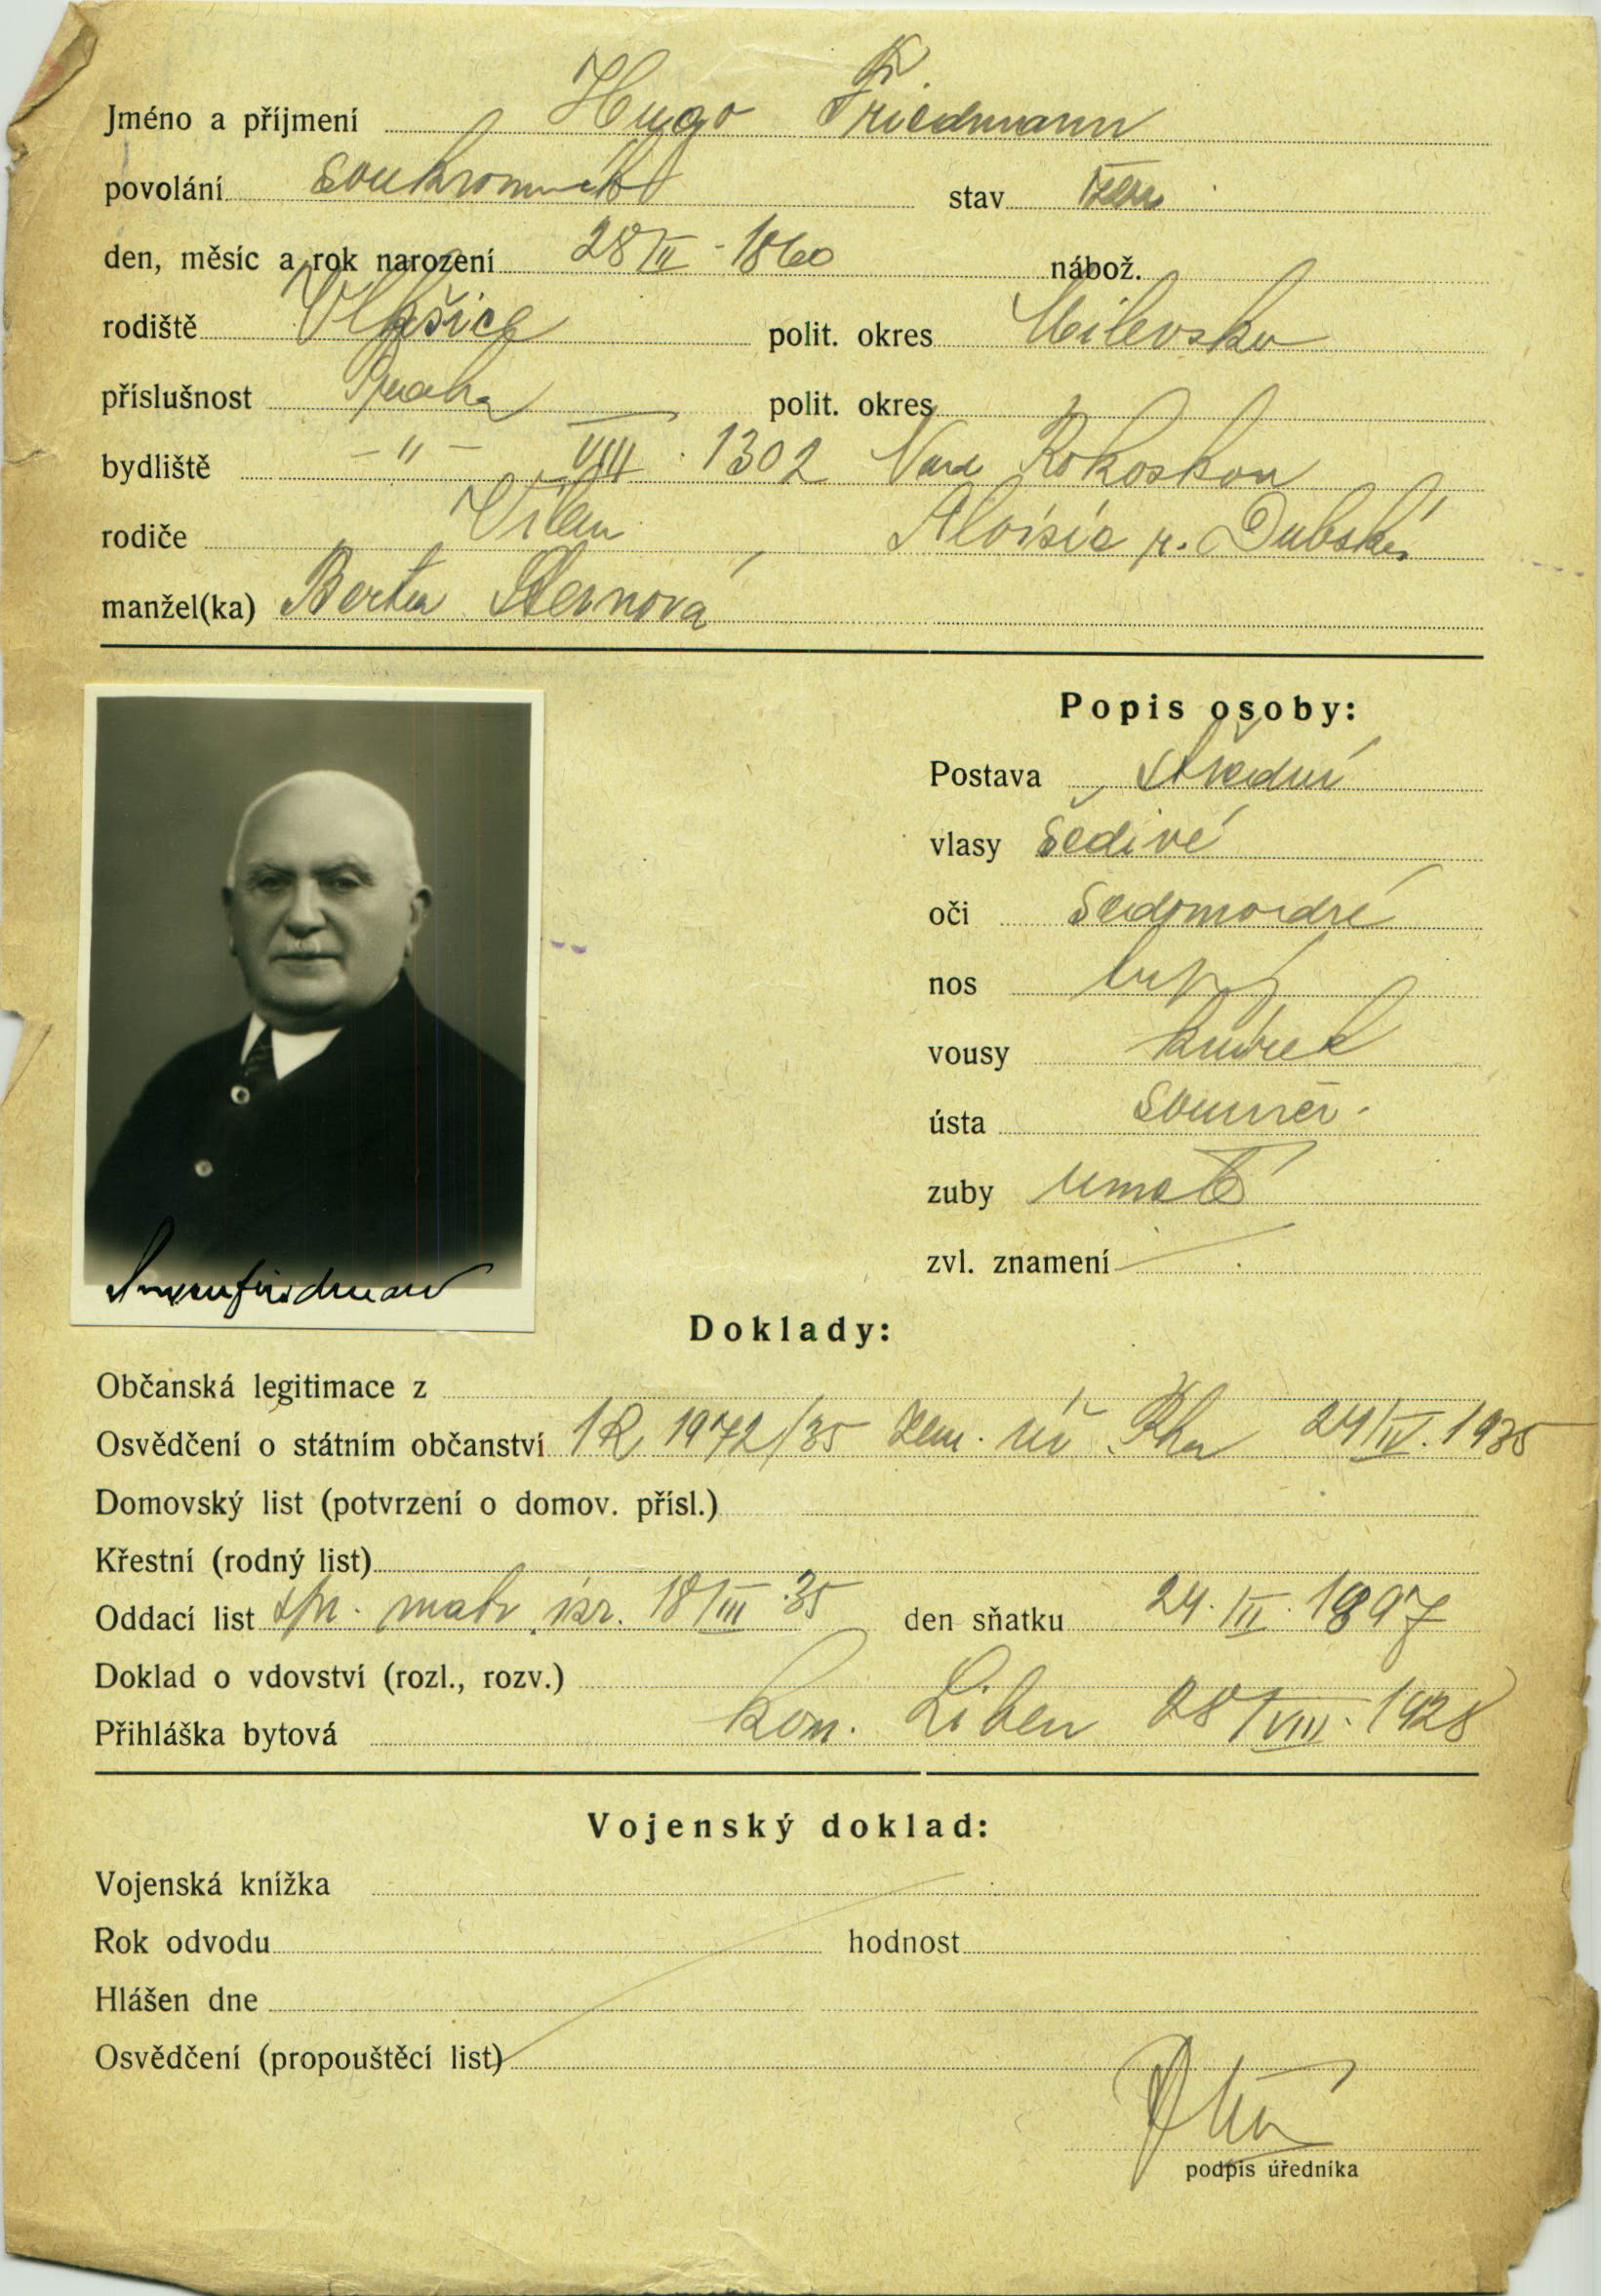 Jméno a příjmení Hugo Friedmann
povolání soukromník stav žen.
den, měsíc a rok narození 28/II - 1860 nábož.
rodiště Vlksice polit. okres Milevsko
příslušnost Praha — polit. okres
bydliště – " – VIII . 1302 Nad Rokoskou
rodiče Vilém , Aloisie r. Dubská
manžel(ka) Berta Sternová
Popis osoby:
Postava střední
vlasy šedivé
oči šedomodré
nos tupý
vousy knírek
ústa souměr.
zuby umělé
zvl. znamení —
Doklady:
Občanská legitimace z
Osvědčení o státním občanství 1R 1972/35 Zem. úř. Pha 24/IV. 1935
Domovský list (potvrzení o domov. přísl.)
Křestní (rodný list)
Oddací list matr. isr. 18/III 35 den sňatku 24. II. 1897
Doklad o vdovství (rozl., rozv.)
Přihláška bytová kom. Libeň 28/VIII. 1928
Vojenský doklad:
Vojenská knížka
Rok odvodu hodnost
Hlášen dne
Osvědčení (propouštěcí list)
podpis úředníka